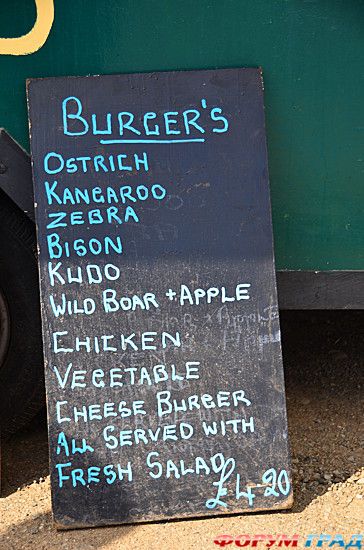 BURGER'S
OSTRICH
KANGAROO
ZEBRA
BISON
KUDO
WILD BOAR + APPLE
CHICKEN
VEGETABLE
CHEESE BURGER
ALL SERVED WITH
FRESH SALAD
£4-20
ФОРУМГРАД